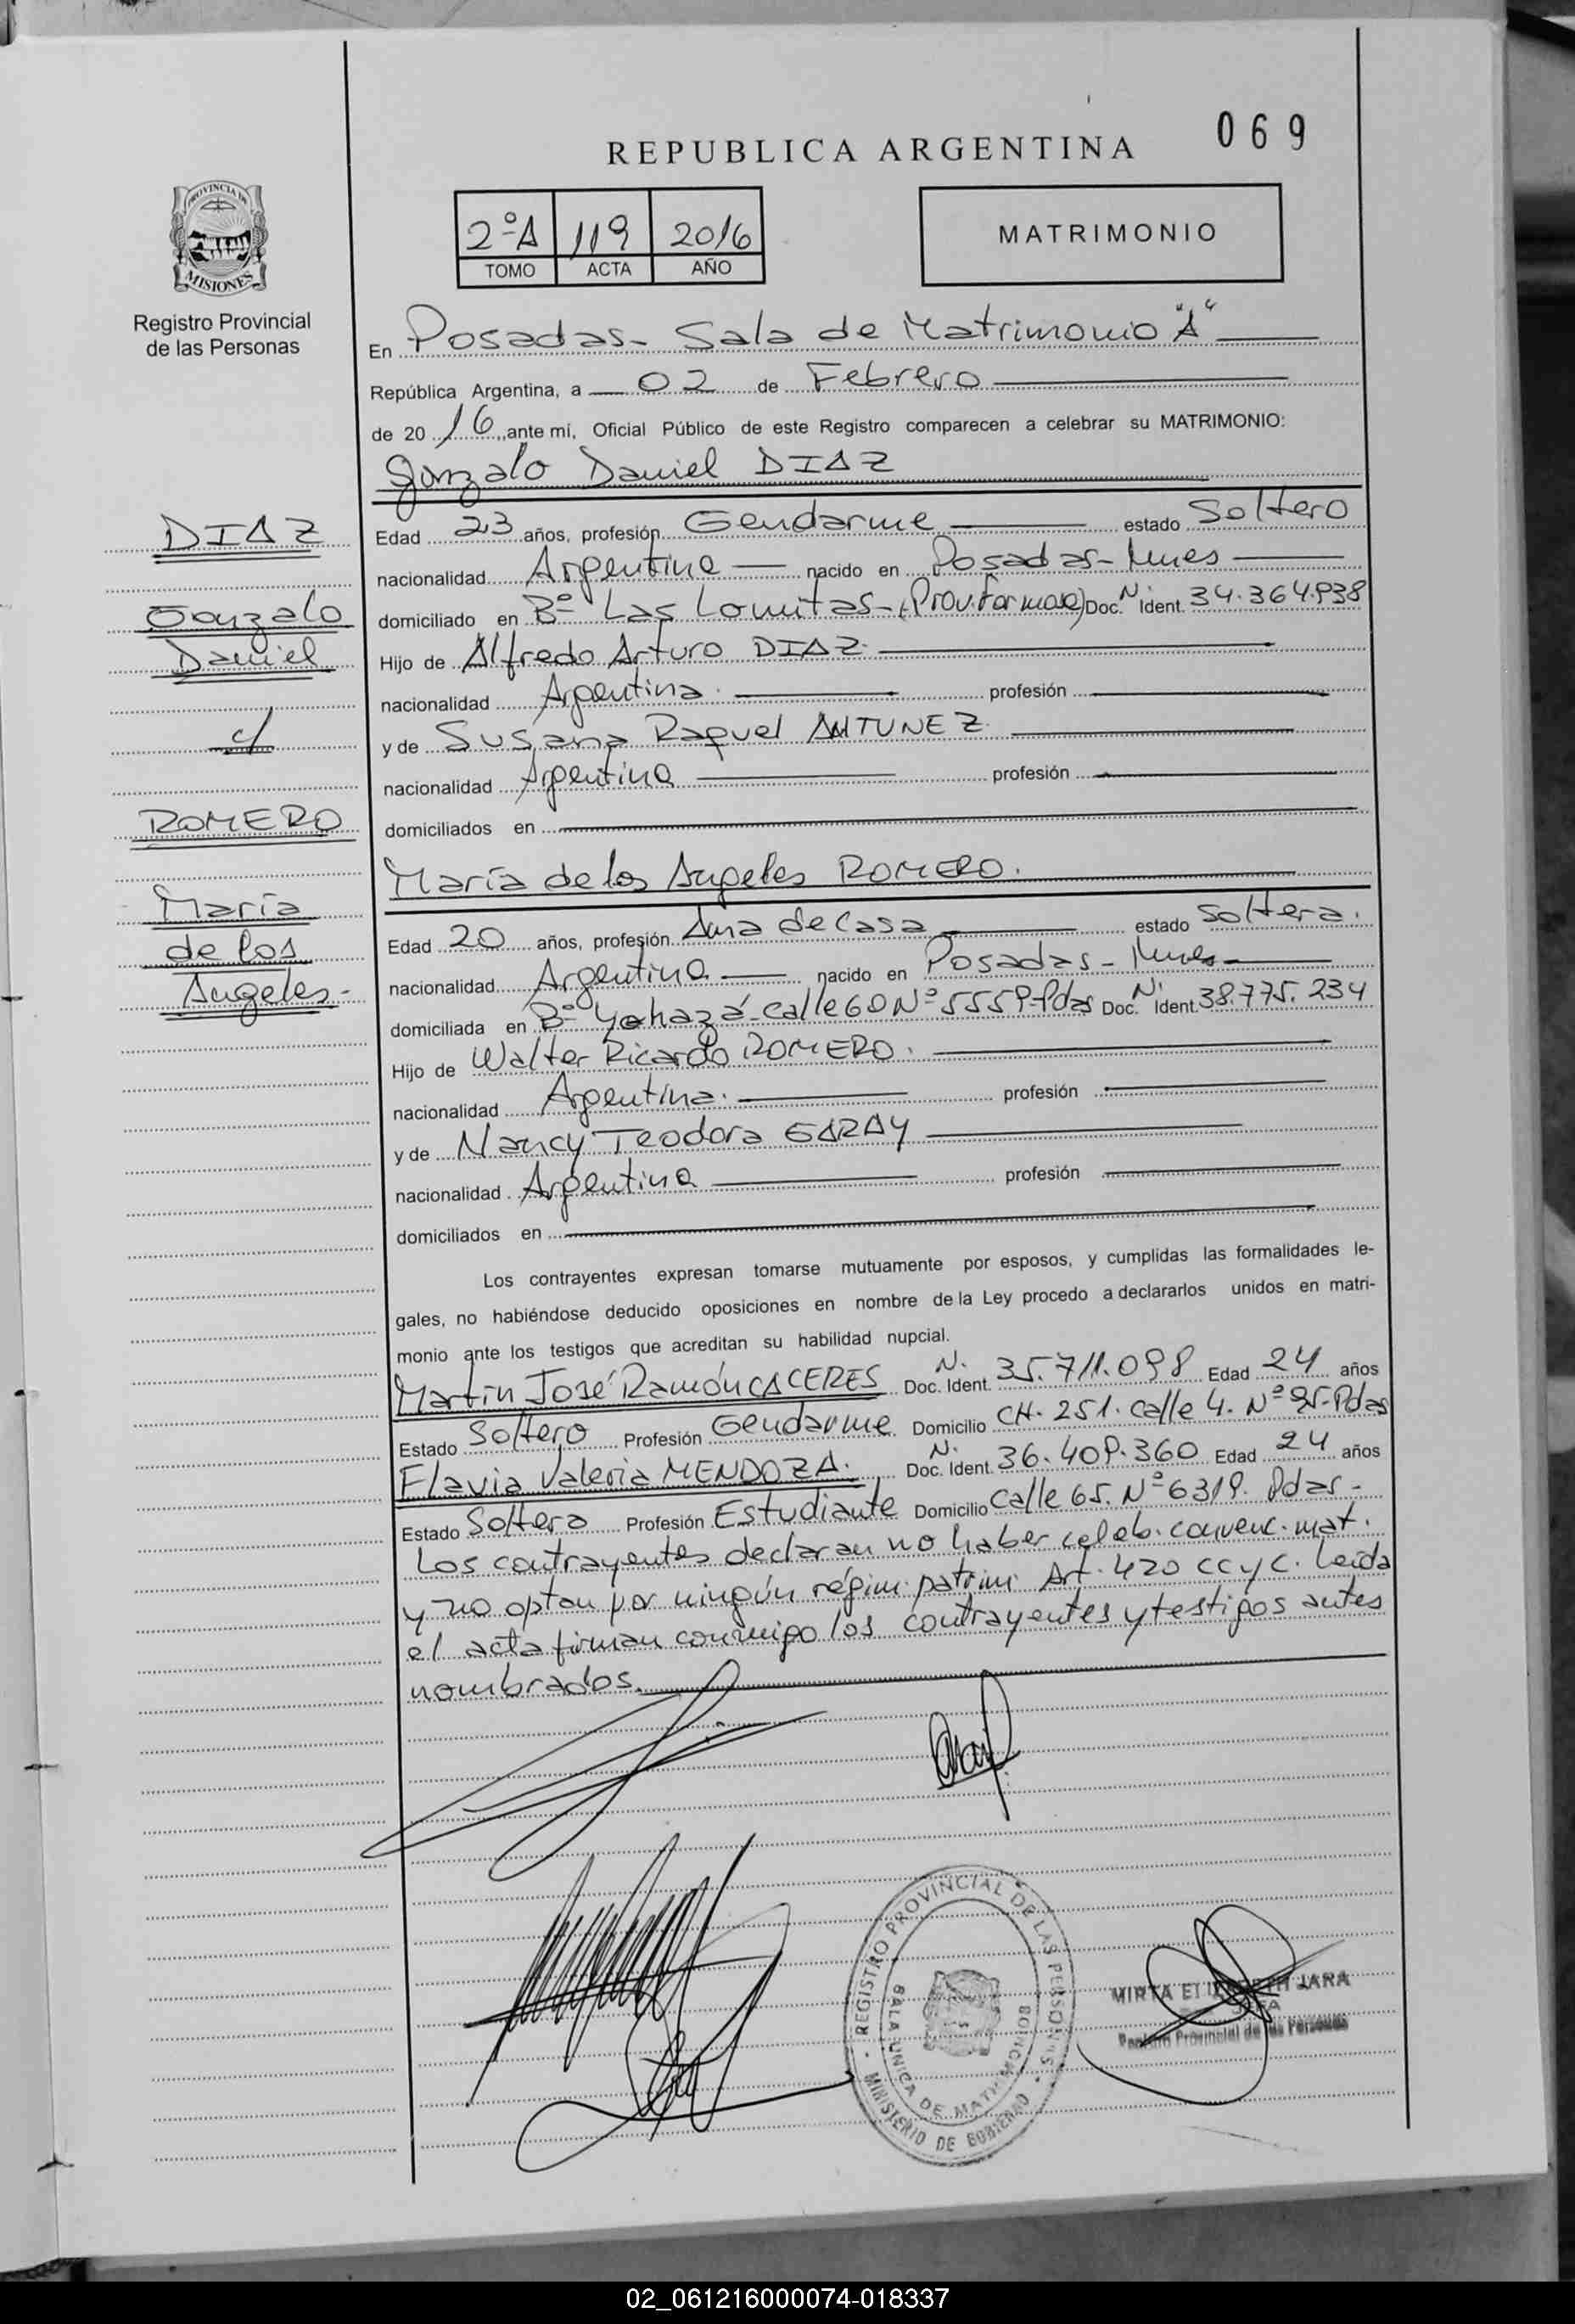 069
REPUBLICA ARGENTINA
2ºA 119 2016
TOMO ACTA AÑO
MATRIMONIO
PROVINCIA DE
MISIONES
Registro Provincial
de las Personas
En Posadas - Sala de Matrimonio "A"
República Argentina, a 02 de Febrero
de 20 16, ante mi, Oficial Público de este Registro comparecen a celebrar su MATRIMONIO:
Gonzalo Daniel DIAZ
DIAZ
Gonzalo
Daniel
c/
ROMERO
María
de los
Angeles-
Edad 23 años, profesión Gendarme estado Soltero
nacionalidad Argentina nacido en Posadas - Mnes
domiciliado en Bº Las Lomitas - (Prov. Formosa) Doc. N. Ident. 34.364.938
Hijo de Alfredo Arturo DIAZ.
nacionalidad Argentina. profesión
y de Susana Raquel ANTUNEZ.
nacionalidad Argentina profesión
domiciliados en
María de los Angeles ROMERO.
Edad 20 años, profesión Ama de Casa estado Soltera.
nacionalidad Argentina nacido en Posadas - Mnes
domiciliada en Bº Yohazá - Calle 60 Nº 5559 - Pdas Doc. N. Ident. 38.775.234
Hijo de Walter Ricardo ROMERO.
nacionalidad Argentina. profesión
y de Nancy Teodora GARAY
nacionalidad Argentina profesión
domiciliados en
Los contrayentes expresan tomarse mutuamente por esposos, y cumplidas las formalidades le-
gales, no habiéndose deducido oposiciones en nombre de la Ley procedo a declararlos unidos en matri-
monio ante los testigos que acreditan su habilidad nupcial.
Martín José Ramón CACERES Doc. N. Ident. 35.711.098 Edad 24 años
Estado Soltero Profesión Gendarme Domicilio CH. 251. Calle 4. Nº 95-Pdas
Flavia Valeria MENDOZA. Doc. N. Ident. 36.409.360 Edad 24 años
Estado Soltera Profesión Estudiante Domicilio Calle 65. Nº 6319. Pdas-
Los contrayentes declaran no haber celeb. convenc. mat.
y no optan por ningún régim. patrim. Art. 420 CCyC. Leída
el acta firman conmigo los contrayentes y testigos antes
nombrados.
REGISTRO PROVINCIAL DE LAS PERSONAS
SALA UNICA DE MATRIMONIOS
MINISTERIO DE GOBIERNO
MIRTA JARA
Registro Provincial de las Personas
02_061216000074-018337